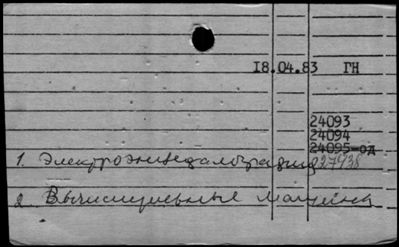 18.04.83 ГН
24093
24094
24095-од
1. Электроэнцефалография 27938
2. Вычислительные машины